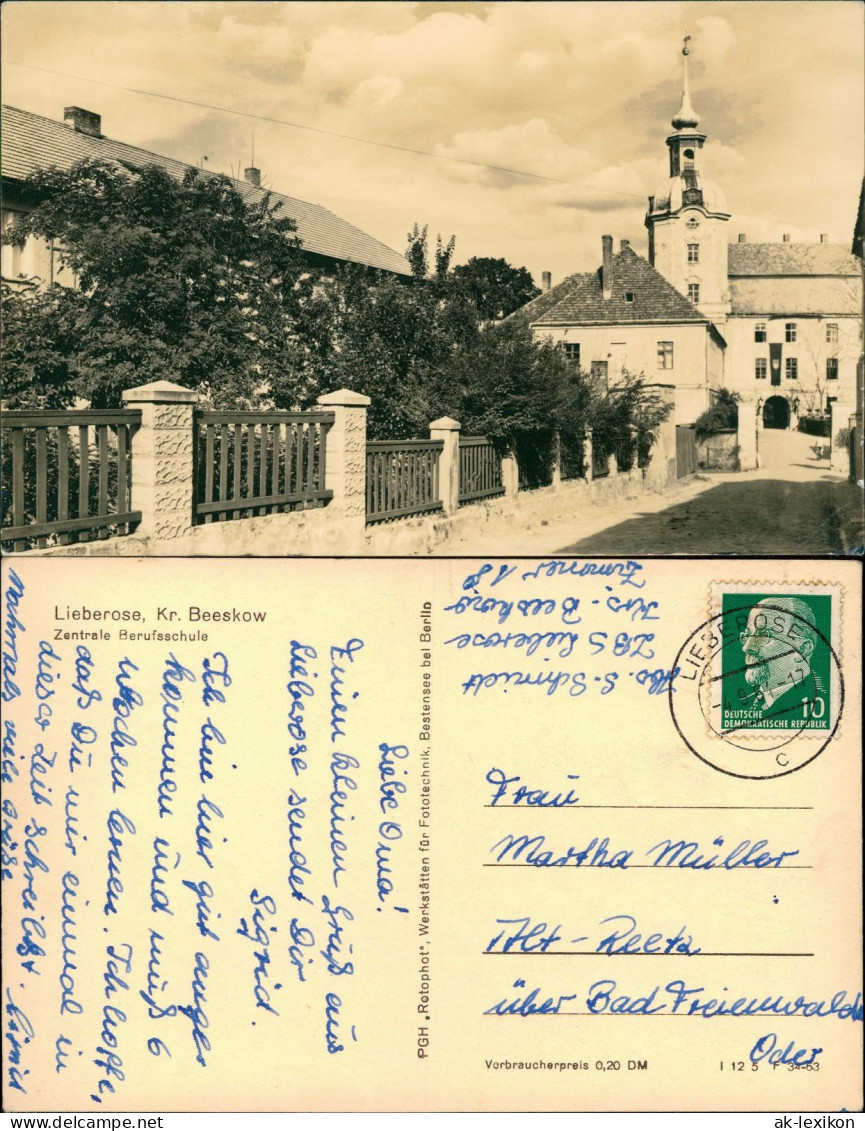 Lieberose, Kr. Beeskow
Zentrale Berufsschule
Liebe Oma!
Einen kleinen Gruß aus
Lieberose sendet Dir
Sigrid.
Ich bin hier gut ange
kommen und muß 6
Wochen lernen. Ich hoffe,
daß Du mir einmal in
dieser Zeit schreibst.
Nochmals viele Grüße Sigrid
PGH „Rotophot", Werkstätten für Fototechnik, Bestensee bei Berlin
Abs. S. Schmidt
ZBS Lieberose
Krs. Beeskow
Zimmer 18
LIEBEROSE
c
10
DEUTSCHE
DEMOKRATISCHE REPUBLIK
Frau
Martha Müller
Alt-Reetz
über Bad Freienwalde
Oder
Verbraucherpreis 0,20 DM
I 12 5 F 34-63
ak-lexikon